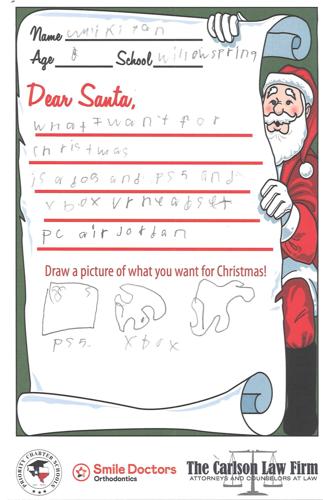 Name
Age 8 School willowspring
Dear Santa,
what I want for
christmas
is a dog and PS5 and
xbox vr headset
pc air jordan
Draw a picture of what you want for Christmas!
PS5. xbox
PRIORITY CHARTER SCHOOLS
Smile Doctors
Orthodontics
The Carlson Law Firm
ATTORNEYS AND COUNSELORS AT LAW